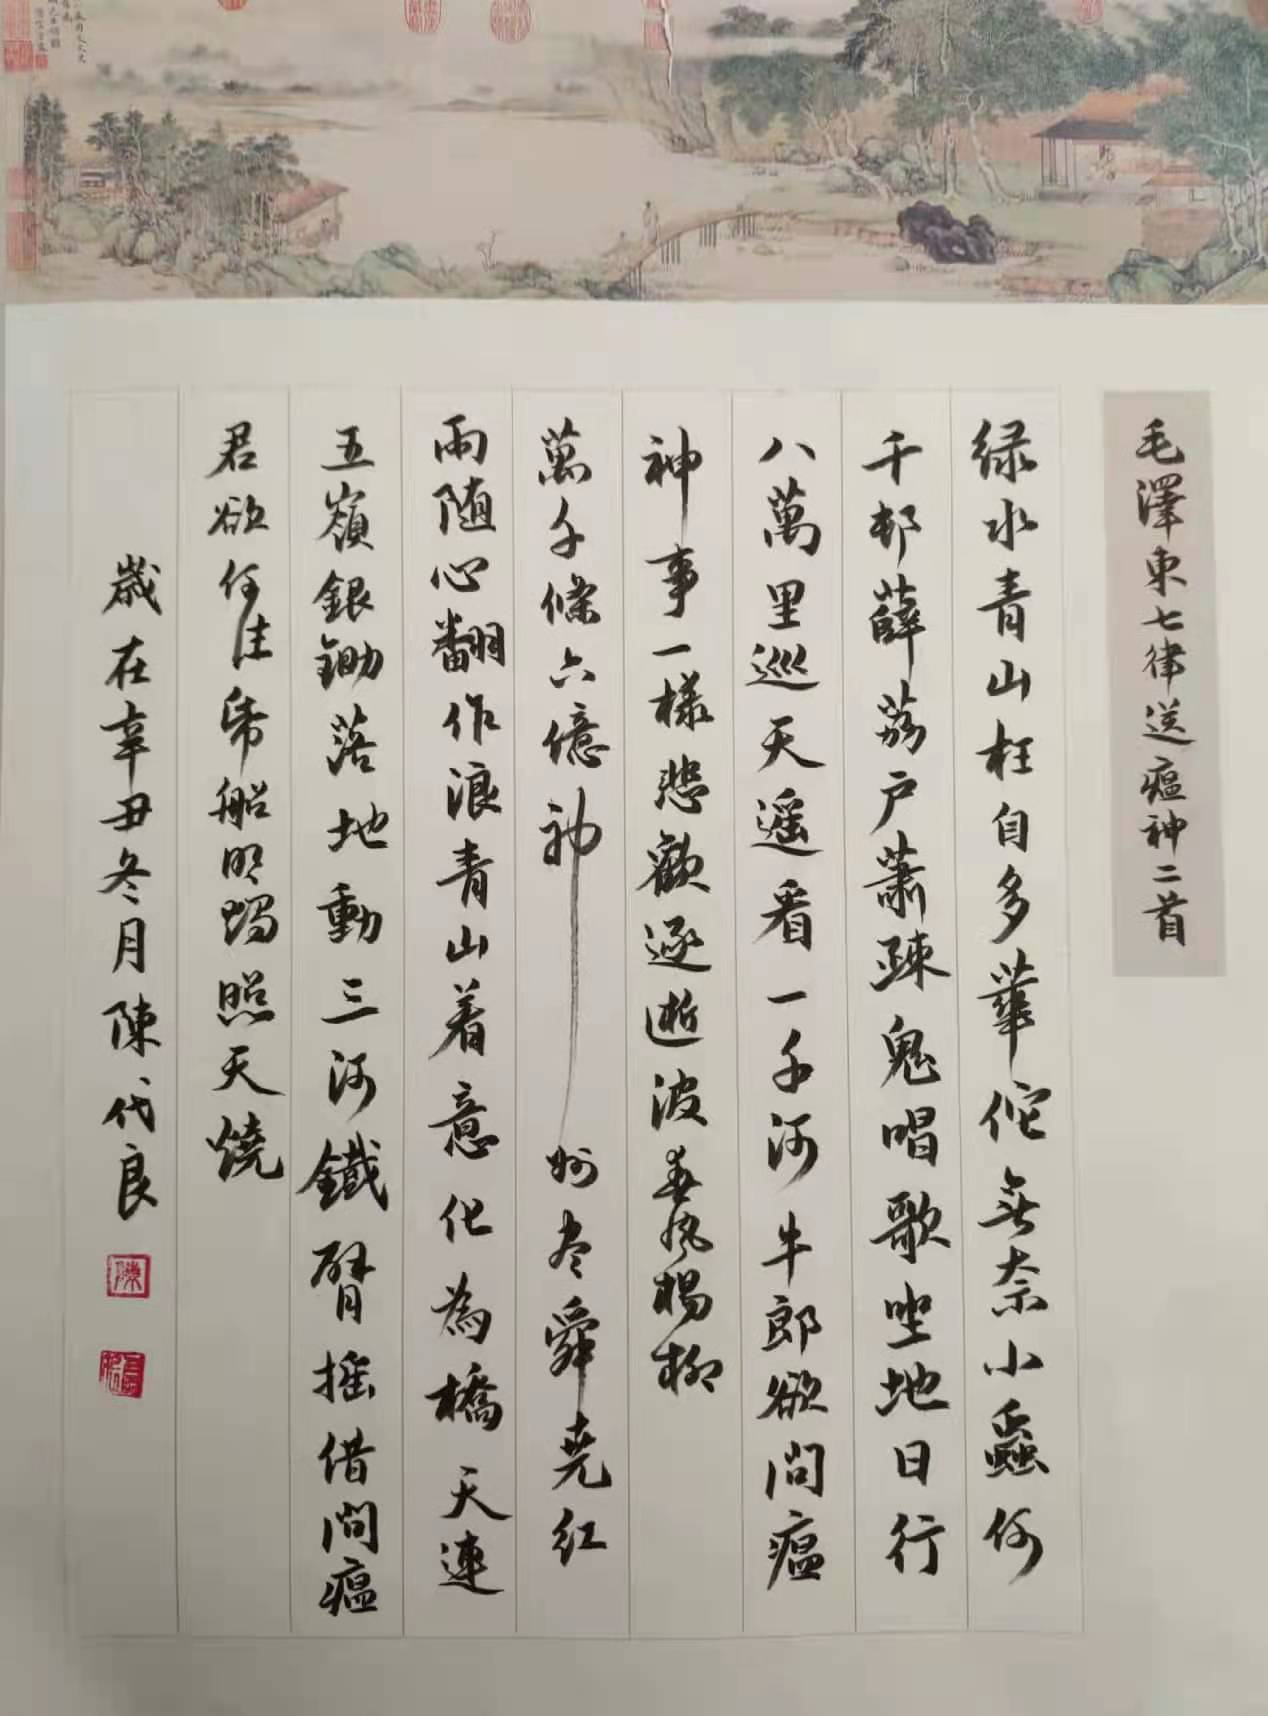 毛澤東七律送瘟神二首
绿水青山枉自多華佗無奈小蟲何
千邨薜荔户蕭疎鬼唱歌坐地日行
八萬里巡天遥看一千河牛郎欲問瘟
神事一樣悲歡逐逝波春風楊柳
萬千條六億神州尽舜尭红
雨随心翻作浪青山着意化為橋天連
五嶺銀鋤落地動三河鐵臂摇借問瘟
君欲何往帋船明燭照天燒
歲在辛丑冬月陳代良
陳